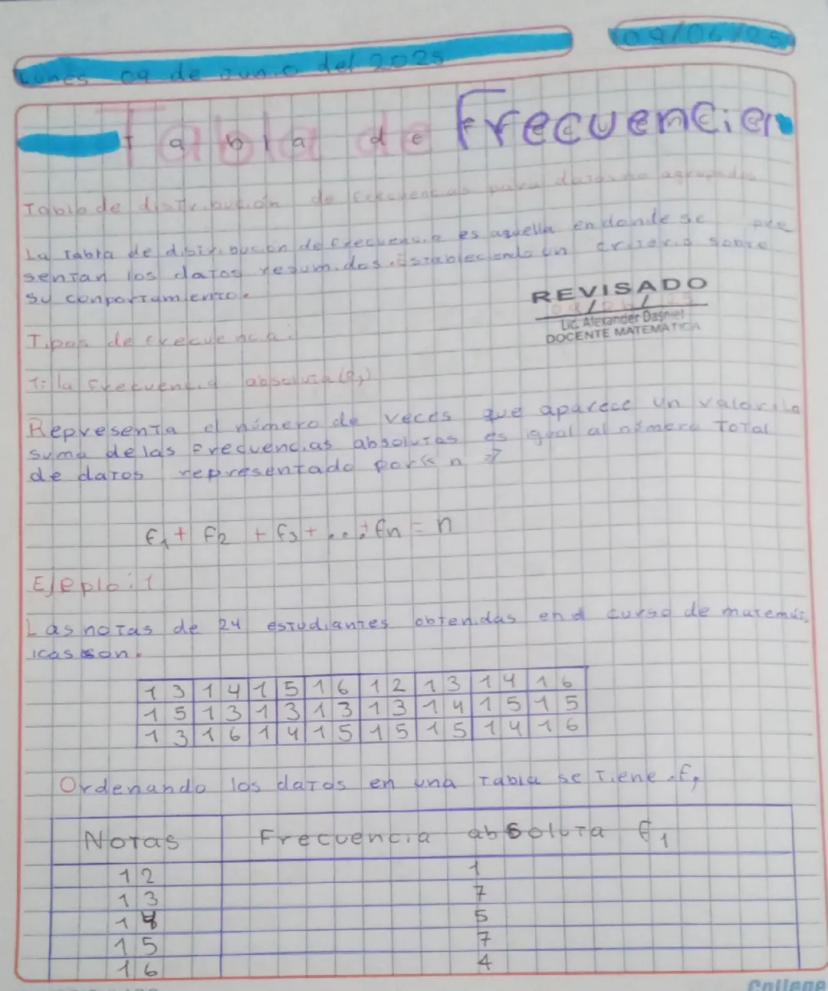 Lunes 09 de Junio del 2025
09/06/25
Tabla de Frecuencia
Tabla de distribución de frecuencias para datos no agrupados
La Tabla de distribución de frecuencia es aquella en donde se pre
sentan los datos resumidos. Estableciendo un criterio sobre
su conportamiento.
REVISADO
09/06/25
Lic. Alexander Dasniel
DOCENTE MATEMATICA
Tipos de frecuencia:
1: la frecuencia absoluta (f1)
Representa el número de veces que aparece un valor. la
suma de las Frecuencias absolutas es igual al número Total
de datos representado por « n »
f1 + f2 + f3 + ... + fn = n
Ejeplo: 1
Las notas de 24 estudiantes obtenidas en el curso de matemát
icas son.
13 14 15 16 12 13 14 16
15 13 13 13 13 14 15 15
13 16 14 15 15 15 14 16
Ordenando los datos en una Tabla se Tiene. f1
Notas Frecuencia absoluta f1
12 1
13 7
14 5
15 7
16 4
College